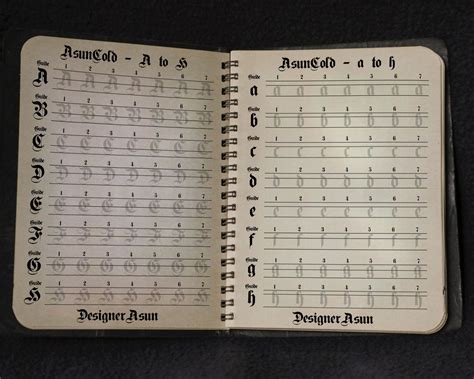 AsunCold - A to H
Guide 1 2 3 4 5 6 7
A A A A A A A A
Guide 1 2 3 4 5 6 7
B B B B B B B B
Guide 1 2 3 4 5 6 7
C C C C C C C C
Guide 1 2 3 4 5 6 7
D D D D D D D D
Guide 1 2 3 4 5 6 7
E E E E E E E E
Guide 1 2 3 4 5 6 7
F F F F F F F F
Guide 1 2 3 4 5 6 7
G G G G G G G G
Guide 1 2 3 4 5 6 7
H H H H H H H H
Designer Asun
AsunCold - a to h
Guide 1 2 3 4 5 6 7
a a a a a a a a
Guide 1 2 3 4 5 6 7
b b b b b b b b
Guide 1 2 3 4 5 6 7
c c c c c c c c
Guide 1 2 3 4 5 6 7
d d d d d d d d
Guide 1 2 3 4 5 6 7
e e e e e e e e
Guide 1 2 3 4 5 6 7
f f f f f f f f
Guide 1 2 3 4 5 6 7
g g g g g g g g
Guide 1 2 3 4 5 6 7
h h h h h h h h
Designer Asun